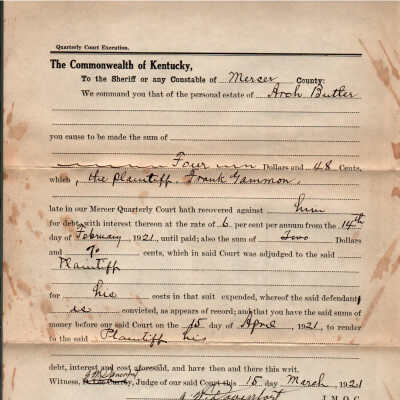 Quarterly Court Execution.
The Commonwealth of Kentucky,
To the Sheriff or any Constable of Mercer County:
We command you that of the personal estate of Arch Butler
you cause to be made the sum of
Four Dollars and 48 Cents,
which, the Plaintiff, Frank Gammon,
late in our Mercer Quarterly Court hath recovered against him
for debt with interest thereon at the rate of 6 per cent per annum from the 14th
day of February 1921, until paid; also the sum of Two Dollars
and 70 cents, which in said Court was adjudged to the said
Plaintiff
for his costs in that suit expended, whereof the said defendant
is convicted, as appears of record; and that you have the said sums of
money before our said Court on the 15 day of April, 1921, to render
to the said Plaintiff his
debt, interest and cost aforesaid, and have then and there this writ.
Witness, Judge of our said Court this 15 day March 1921
J. M. Q. C.